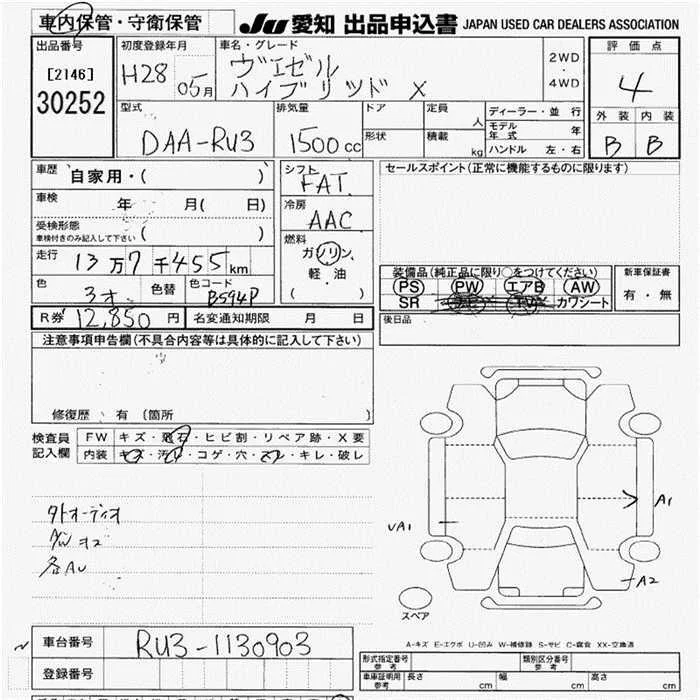 車内保管・守衛保管
JU 愛知 出品申込書 JAPAN USED CAR DEALERS ASSOCIATION
出品番号
[2146]
30252
初度登録年月
H28 05月
車名・グレード
ヴェゼル
ハイブリッド X
2WD
・
4WD
評価点
4
外装 内装
B B
型式
DAA-RU3
排気量
1500cc
ドア
形状
定員
人
積載
kg
ディーラー・並行
モデル年式 年
ハンドル 左・右
車歴 自家用・( )
車検 年 月( 日)
受検形態
車検付きのみ記入して下さい ( )
走行 13万7千455km
色 色替 色コード
B594P
シフト
FAT
冷房
AAC
燃料
ガソリン
軽・油
( )
セールスポイント(正常に機能するものに限ります)
装備品(純正品に限り○をつけてください)
PS PW エアB AW
SR TV カワシート
新車保証書
有・無
R券 12,850円 名変通知期限 月 日
後日品
注意事項申告欄(不具合内容等は具体的に記入して下さい)
修復歴 有 (箇所
検査員記入欄
FW キズ・飛石・ヒビ割・リペア跡・X要
内装 キズ・汚れ・コゲ・穴・スレ・キレ・破レ
各AU
UA1
A1
A2
スペア
A-キズ E-エクボ U-凹み W-補修跡 S-サビ C-腐食 XX-交換済
車台番号 RU3-1130903
登録番号
形式指定番号 参考
類別区分番号 参考
車庫証明用 参考 長さ cm 幅 cm 高さ cm